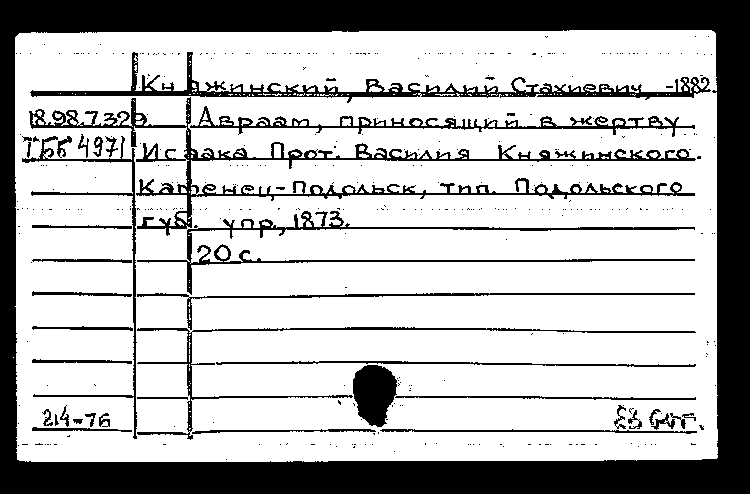 Княжинский, Василий Стахиевич, -1882.
18.98.7.329. Авраам, приносящий в жертву
ТББ 4971 Исаака. Прот. Василия Княжинского.
Каменец-Подольск, тип. Подольского
губ. упр., 1873.
20 с.
214-76